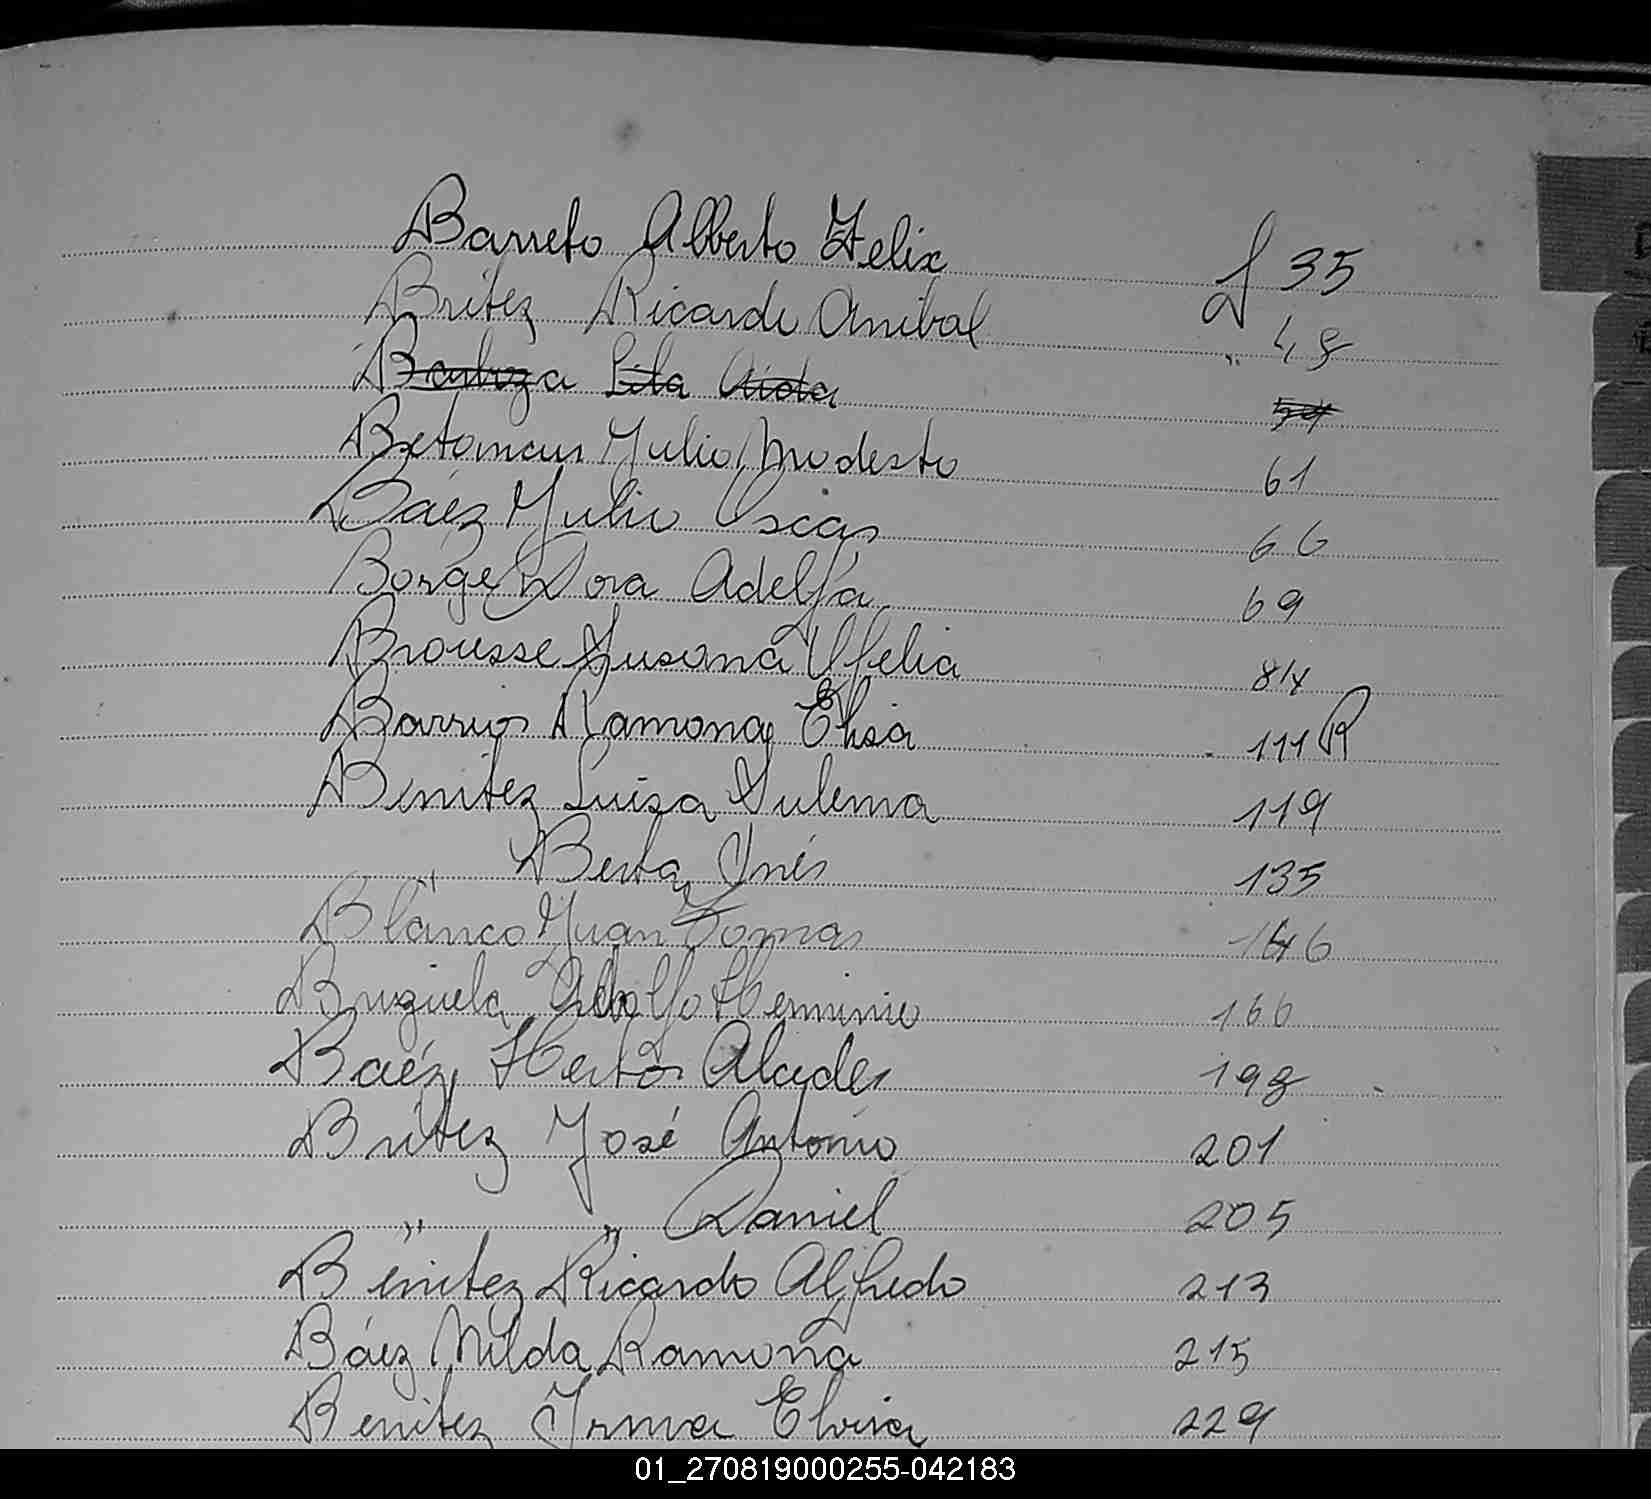 Barreto Alberto Felix f 35
Britez Ricardo Anibal " 48
Barboza Lita Aida 54
Betancur Julio Modesto 61
Báez Julio Oscar 66
Borge Dora Adelfa 69
Brousse Susana Ofelia 84
Barrios Ramona Elisa 111 R
Benitez Luisa Sulema 119
" Berta Inés 135
Blanco Juan Tomas 146
Bruzuela Adolfo Herminio 166
Baéz Hector Alcides 198
Britez José Antonio 201
" " Daniel 205
Benitez Ricardo Alfredo 213
Báez Nilda Ramona 215
Benitez Irma Elvira 229
01_270819000255-042183